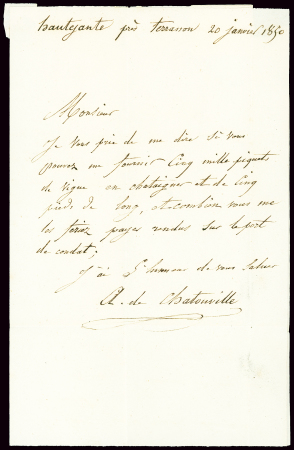 hautejante près terrasson 20 janvier 1850
Monsieur
Je vous prie de me dire si vous
pouvez me fournir Cinq mille piquets
de vigne en chataigner et de Cinq
pieds de long, et combien vous me
les feriez payer rendus sur le port
de condat;
J'ai l'honneur de vous saluer
A. de Chatouville